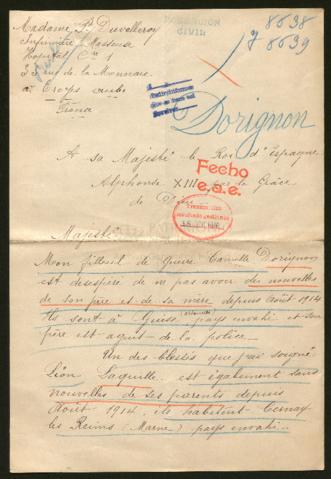 Madame Duvelleroy
Infirmière Masseuse
Hopital
33 rue de la Monnaie
à Troyes Aube
France
CIVIL
8638
y 8639
Dorignon
A sa Majesté le Roi d'Espagne
Alphonse XIII par la Grâce
de Dieu
Fecho
e.a.e.
Majesté
Mon filleul de Guerre Camille Dorignon
est désespéré de ne pas avoir des nouvelles
de son père et de sa mère depuis Août 1914
Ils sont à Guise pays envahi et son
père est agent de la police.
Un des blessés que j'ai soigné
Léon Laquille est également sans
nouvelles de ses parents depuis
Août 1914, ils habitent Cernay
les Reims (Marne) pays envahi.